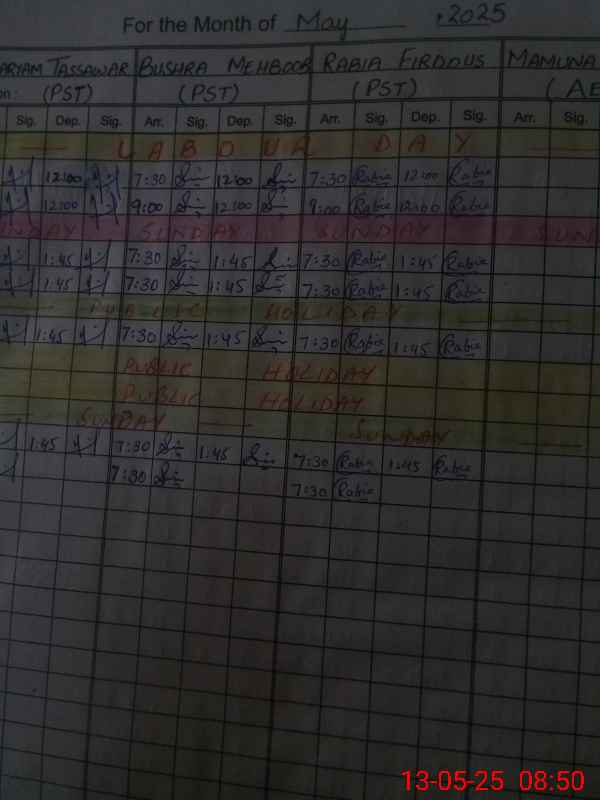 For the Month of May , 2025
ARYAM TASSAWAR BUSHRA MEHBOOB RABIA FIRDOUS MAMUNA
on: (PST) (PST) (PST) (AE
Sig. Dep. Sig. Arr. Sig. Dep. Sig. Arr. Sig. Dep. Sig. Arr. Sig.
LABOUR DAY
12:00 7:30 12:00 7:30 Rabia 12:00 Rabia
12:00 9:00 12:00 9:00 Rabia 12:00 Rabia
UNDAY SUNDAY SUNDAY SUN
1:45 7:30 1:45 7:30 Rabia 1:45 Rabia
1:45 7:30 1:45 7:30 Rabia 1:45 Rabia
PUBLIC HOLIDAY
1:45 7:30 1:45 7:30 Rabia 1:45 Rabia
PUBLIC HOLIDAY
PUBLIC HOLIDAY
SUNDAY SUNDAY
1:45 7:30 1:45 7:30 Rabia 1:45 Rabia
7:30 7:30 Rabia
13-05-25 08:50